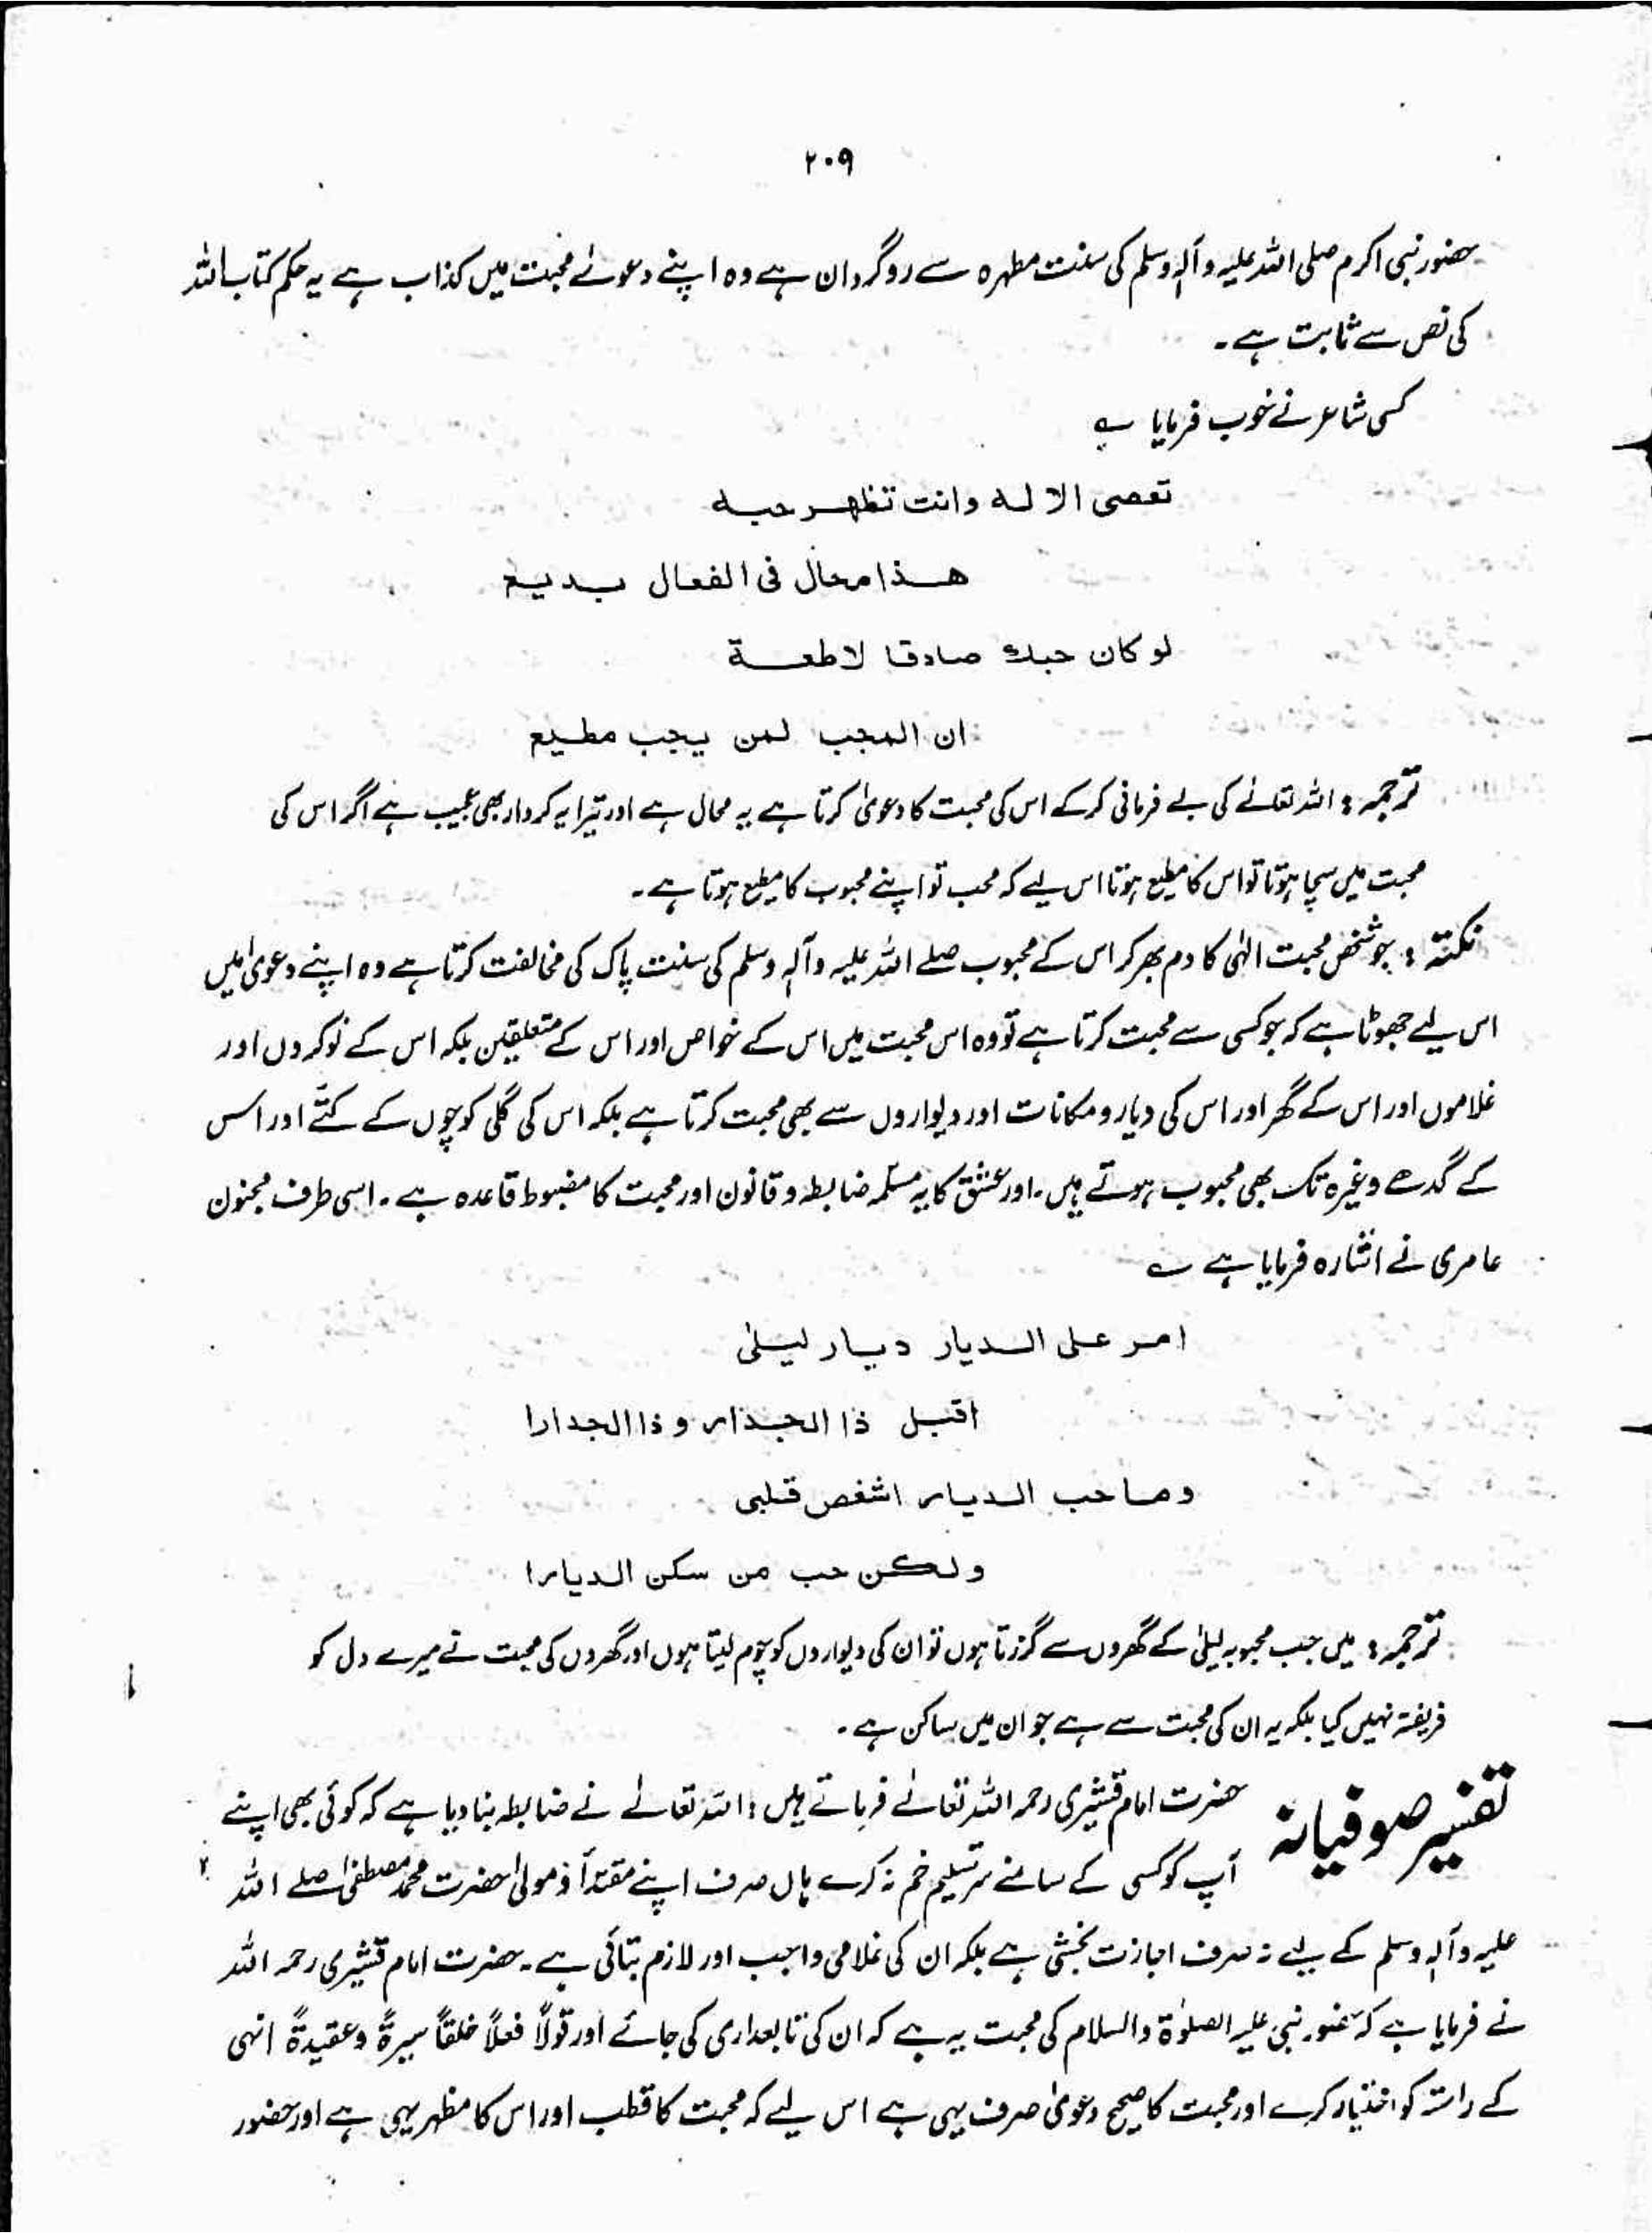 ۲۰۹
حضور نبی اکرم صلی اللہ علیہ وآلہٖ وسلم کی سنت مطہرہ سے روگردان ہے وہ اپنے دعوےٰ محبت میں کذاب ہے یہ حکم کتاب اللہ
کی نص سے ثابت ہے۔
کسی شاعر نے خوب فرمایا ؎
تعصی الا لہ وانت تظہر حبہ
ھذا محال فی الفعال بدیع
لو کان حبک صادقا لاطعة
ان المحب لمن یحب مطیع
ترجمہ : اللہ تعالےٰ کی بے فرمانی کرکے اس کی محبت کا دعویٰ کرتا ہے یہ محال ہے اور تیرا یہ کردار بھی عجیب ہے اگر اس کی
محبت میں سچا ہوتا تو اس کا مطیع ہوتا اس لیے کہ محب تو اپنے محبوب کا مطیع ہوتا ہے۔
نکتہ : جو شخص محبت الہٰی کا دم بھر کر اس کے محبوب صلے اللہ علیہ وآلہٖ وسلم کی سنت پاک کی مخالفت کرتا ہے وہ اپنے دعویٰ میں
اس لیے جھوٹا ہے کہ جو کسی سے محبت کرتا ہے تو وہ اس محبت میں اس کے خواص اور اس کے متعلقین بلکہ اس کے نوکروں اور
غلاموں اور اس کے گھر اور اس کی دیار و مکانات اور دیواروں سے بھی محبت کرتا ہے بلکہ اس کی گلی کوچوں کے کتّے اور اس
کے گدھے وغیرہ تک بھی محبوب ہوتے ہیں۔ اور عشق کا یہ مسلّمہ ضابطہ و قانون اور محبت کا مضبوط قاعدہ ہے۔ اسی طرف مجنون
عامری نے اشارہ فرمایا ہے ؎
امر علی الدیار دیار لیلیٰ
اقبل ذا الجدار و ذا الجدارا
وما حب الدیار اشغص قلبی
ولکن حب من سکن الدیارا
ترجمہ : میں جب محبوبہ لیلیٰ کے گھروں سے گزرتا ہوں تو ان کی دیواروں کو چوم لیتا ہوں اور گھروں کی محبت نے میرے دل کو
فریفتہ نہیں کیا بلکہ یہ ان کی محبت سے ہے جو ان میں ساکن ہے۔
تفسیر صوفیانہ حضرت امام قشیری رحمہ اللہ تعالےٰ فرماتے ہیں : اللہ تعالےٰ نے ضابطہ بنا دیا ہے کہ کوئی بھی اپنے
آپ کو کسی کے سامنے سر تسلیم خم نہ کرے ہاں صرف اپنے مقتدأ و مولیٰ حضرت محمد مصطفیٰ صلے اللہ
علیہ وآلہٖ وسلم کے لیے نہ صرف اجازت بخشی ہے بلکہ ان کی غلامی واجب اور لازم بتائی ہے۔ حضرت امام قشیری رحمہ اللہ
نے فرمایا ہے کہ حضور نبی علیہ الصلوٰۃ والسلام کی محبت یہ ہے کہ ان کی تابعداری کی جائے اور قولاً فعلاً خلقاً سیرۃً وعقیدۃً انہی
کے راستہ کو اختیار کرے اور محبت کا صحیح دعویٰ صرف یہی ہے اس لیے کہ محبت کا قطب اور اس کا مظہر یہی ہے اور حضور